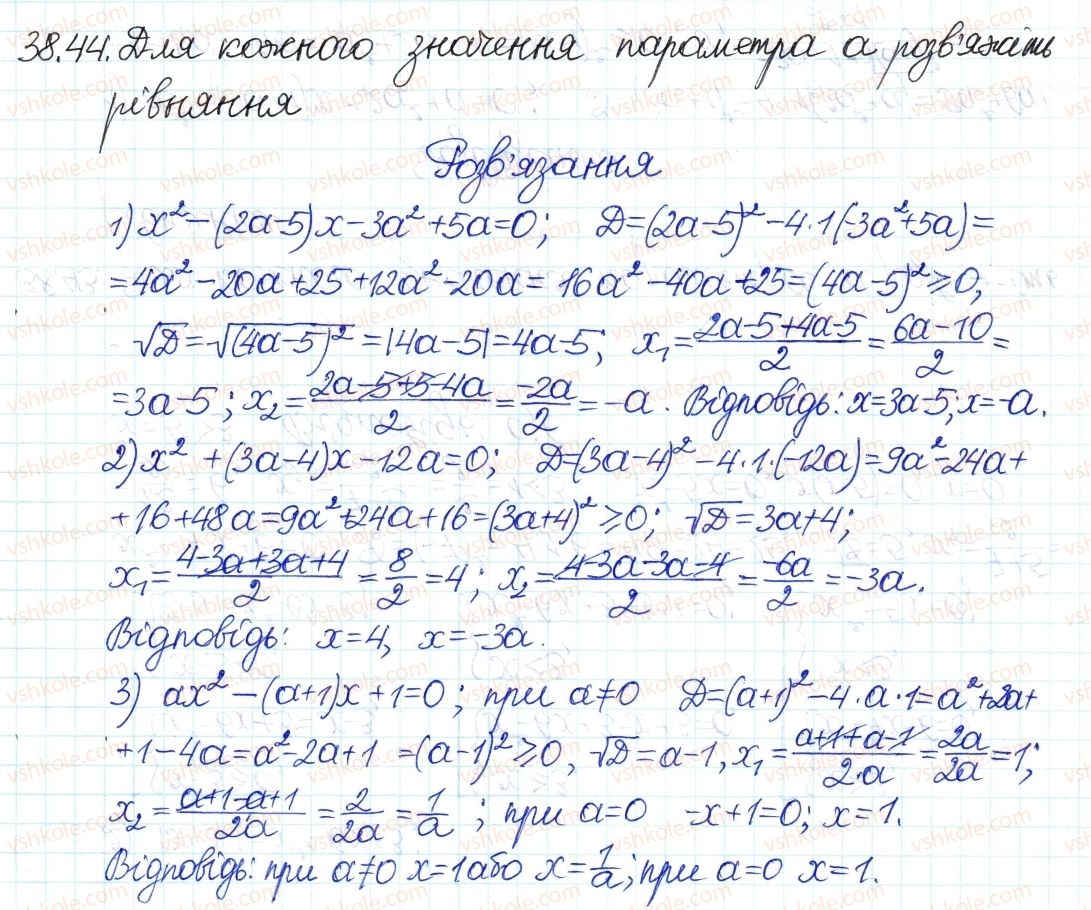 38.44. Для кожного значення параметра a розв'яжіть
рівняння
Розв'язання
1) x² - (2a-5)x - 3a² + 5a = 0; D = (2a-5)² - 4·1(-3a²+5a) =
= 4a² - 20a + 25 + 12a² - 20a = 16a² - 40a + 25 = (4a-5)² ≥ 0;
√D = √(4a-5)² = |4a-5| = 4a-5; x₁ = (2a-5+4a-5)/2 = (6a-10)/2 =
= 3a-5; x₂ = (2a-5+5-4a)/2 = -2a/2 = -a. Відповідь: x=3a-5; x=-a.
2) x² + (3a-4)x - 12a = 0; D = (3a-4)² - 4·1·(-12a) = 9a² - 24a +
+ 16 + 48a = 9a² + 24a + 16 = (3a+4)² ≥ 0; √D = 3a+4;
x₁ = (4-3a+3a+4)/2 = 8/2 = 4; x₂ = (4-3a-3a-4)/2 = -6a/2 = -3a.
Відповідь: x=4, x=-3a.
3) ax² - (a+1)x + 1 = 0; при a≠0 D = (a+1)² - 4·a·1 = a² + 2a +
+ 1 - 4a = a² - 2a + 1 = (a-1)² ≥ 0, √D = a-1, x₁ = (a+1+a-1)/(2·a) = 2a/2a = 1;
x₂ = (a+1-a+1)/2a = 2/2a = 1/a; при a=0 -x+1=0; x=1.
Відповідь: при a≠0 x=1 або x=1/a; при a=0 x=1.